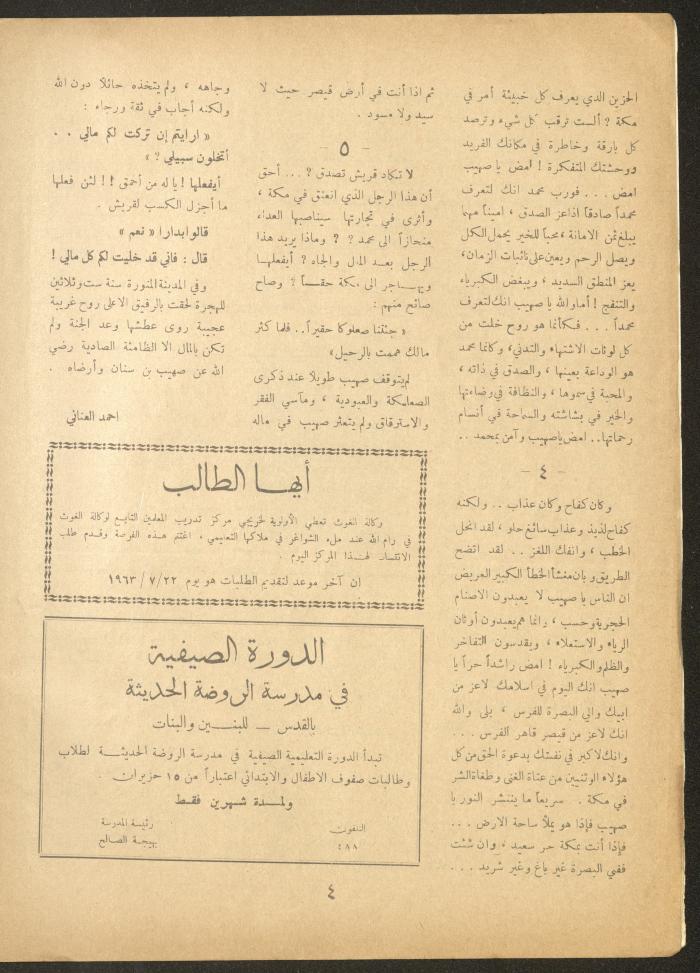 الحزين الذي يعرف كل خبيئة أمر في
مكة ? ألست ترقب كل شيء وترصد
كل بارقة وخاطرة في مكانك الفريد
ووحشتك المتفكرة ! امض يا صهيب
امض . . . فورب محمد انك لتعرف
محمداً صادقاً اذا عز الصدق ، اميناً مهما
يبلغ ثمن الامانة ، محباً للخير يحمل الكل
ويصل الرحم ويعين على نائبات الزمان،
يعز المنطق السديد ، ويبغض الكبرياء
والتنفج ! أما والله يا صهيب انك لتعرف
محمداً . . . فكأنما هو روح خلت من
كل لوثات الاشتهاء والتدني، وكأنما محمد
هو الوداعة بعينها ، والصدق في ذاته ،
والمحبة في سموها ، والنظافة في وضاءتها
والخير في بشاشته والسماحة في أنسام
رحماتها.. امض يا صهيب وآمن بمحمد ..
- ٤ -
وكان كفاح وكان عذاب .. ولكنه
كفاح لذيذ وعذاب سائغ حلو ، لقد انحل
الخطب ، وانفك اللغز .. لقد اتضح
الطريق وبان منشأ الخطأ الكبير العريض
ان الناس يا صهيب لا يعبدون الاصنام
الحجرية وحسب ، وانما هم يعبدون أوثان
الرياء والاستعلاء ، ويقدسون التفاخر
والظلم والكبرياء ! امض راشداً حراً يا
صهيب انك اليوم في اسلامك لاعز من
ابيك والي البصرة للفرس ، بلى والله
انك لاعز من قيصر قاهر الفرس ...
وانك لاكبر في نفسك بدعوة الحق من كل
هؤلاء الوثنيين من عتاة الغنى وطغاة الشر
في مكة . سريعاً ما ينتشر النور يا
صهيب فإذا هو يملأ ساحة الارض ...
فإذا أنت بمكة حر سعيد ، وإن شئت
ففي البصرة غير باغ وغير شريد ...
ثم اذا أنت في أرض قيصر حيث لا
سيد ولا مسود .
- ٥ -
لا تكاد قريش تصدق ? ... أحق
أن هذا الرجل الذي انعتق في مكة ،
وأثرى في تجارتها سيناصبها العداء
منحازاً الى محمد ? ? وماذا يريد هذا
الرجل بعد المال والجاه ? أيفعلها
ويهاجر الى مكة حقاً ? وصاح
صائح منهم :
« جئتنا صعلوكا حقيراً.. فلما كثر
مالك هممت بالرحيل»
لم يتوقف صهيب طويلا عند ذكرى
الصعلكة والعبودية ، ومآسي الفقر
والاسترقاق ولم يتعثر صهيب في ماله
وجاهه ، ولم يتخذه حائلا دون الله
ولكنه أجاب في ثقة ورجاء :
« ارايتم إن تركت لكم مالي . .
أتخلون سبيلي ? »
أيفعلها ! يا له من أحمق !! لئن فعلها
ما أجزل الكسب لقريش .
قالوا بدارا « نعم »
قال : فاني قد خليت لكم كل مالي !
وفي المدينة المنورة سنة ست وثلاثين
للهجرة لحقت بالرفيق الاعلى روح غريبة
عجيبة روى عطشها وعد الجنة ولم
تكن بالمال الا الظامئة الصادية رضي
الله عن صهيب بن سنان وأرضاه .
احمد العناني
أيها الطالب
وكالة الغوث تعطي الأولوية لخريجي مركز تدريب المعلمين التابع لوكالة الغوث
في رام الله عند ملء الشواغر في ملاكها التعليمي ، اغتنم هذه الفرصة وقدم طلب
الانتساب لهذا المركز اليوم .
ان آخر موعد لتقديم الطلبات هو يوم ٢٢ /٧ /١٩٦٣
الدورة الصيفية
في مدرسة الروضة الحديثة
بالقدس – للبنين والبنات
تبدأ الدورة التعليمية الصيفية في مدرسة الروضة الحديثة لطلاب
وطالبات صفوف الاطفال والابتدائي اعتباراً من ١٥ حزيران .
ولمدة شهرين فقط
التلفون
٤٨٨
رئيسة المدرسة
بهيجة الصالح
٤